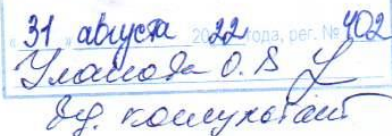 "31" августа 2022 года, рег. № 402
Уланова О.В
вед. консультант